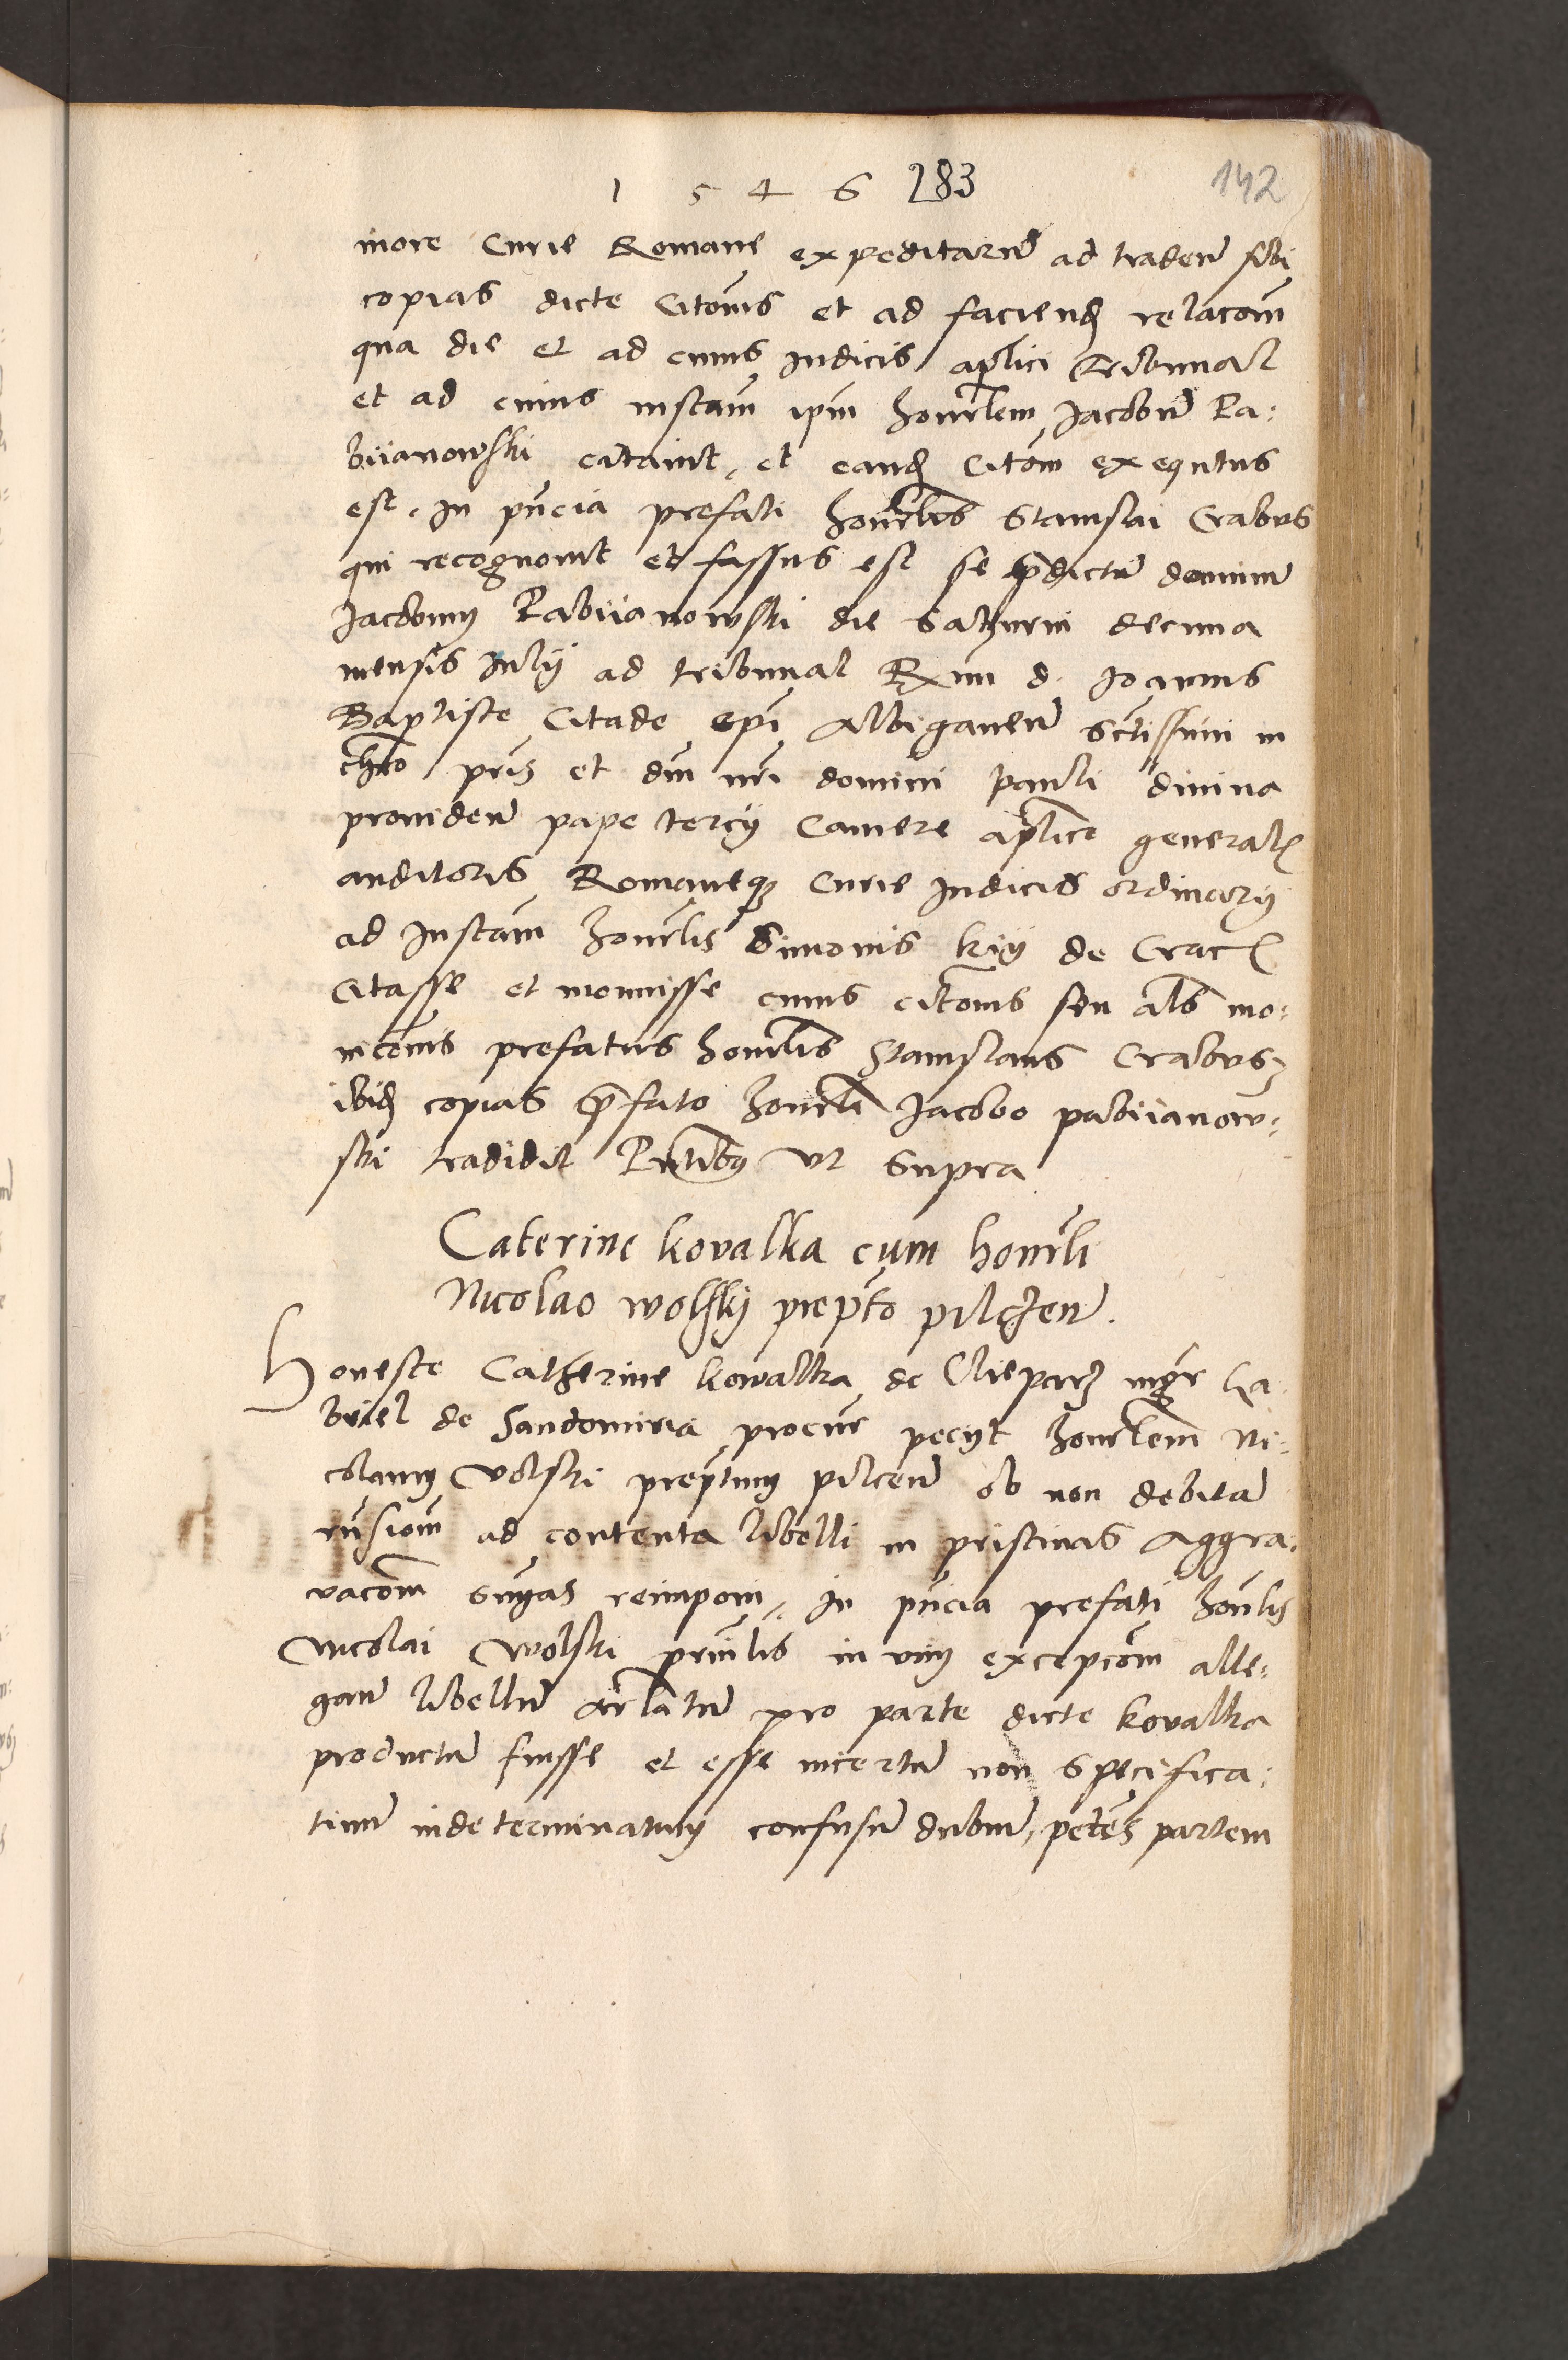 1 5 4 6 283 142
more Curie Romane expeditarum ad traden sibi
copias dicte Citcois et ad faciend relacom
qua die et ad cuius Iudicis aplici Tribunal
et ad cuius instam ipm honrlem Jacobum Pa:
biianowski citauit, et eand Citcom exequtus
est, In pncia prefati honrlis Stanislai Crabus
qui recognouit et fassus est se predictum dominum
Jacobum Pabiianowski die Sathurni decima
mensis Iulÿ ad tribunal Rxmi d. Joannis
Baptiste Citade epi Albiganen Sctissimi in
chro pris et dni nri domini Pauli diuina
prouiden pape tercÿ Camere aplice general
auditoris Romaneq Curie Iudicis ordinarÿ
ad Instam honrlis Simonis kiÿ de Crac
Citasse et monuisse cuius citcois seu als mo:
nicois prefatus honrlis Stanislaus Crabus
ibid copias prefato honrli Jacobo pabiianow:
ski tradidit Pntibus vt Supra
Caterine kovalka cum honrli
Nicolao wolskÿ prepto pilczen.
Honeste Catherine kowalka de Clieparz mgr Ga
briel de Sandomiria procur pecÿt honrlem Ni:
colaum Volski preptum pilcen ob non debitam
rnsiom ad contenta libelli in pristinas Aggra:
vacom suas reimponi, In pncia prefati honrlis
Nicolai Wolski prinlis in vim excepcom alle:
gan libellum arlatum pro parte dicte kovalka
productum fuisse et esse incertum non specifica:
tiuum indeterminatum confusum dubium, petens partem